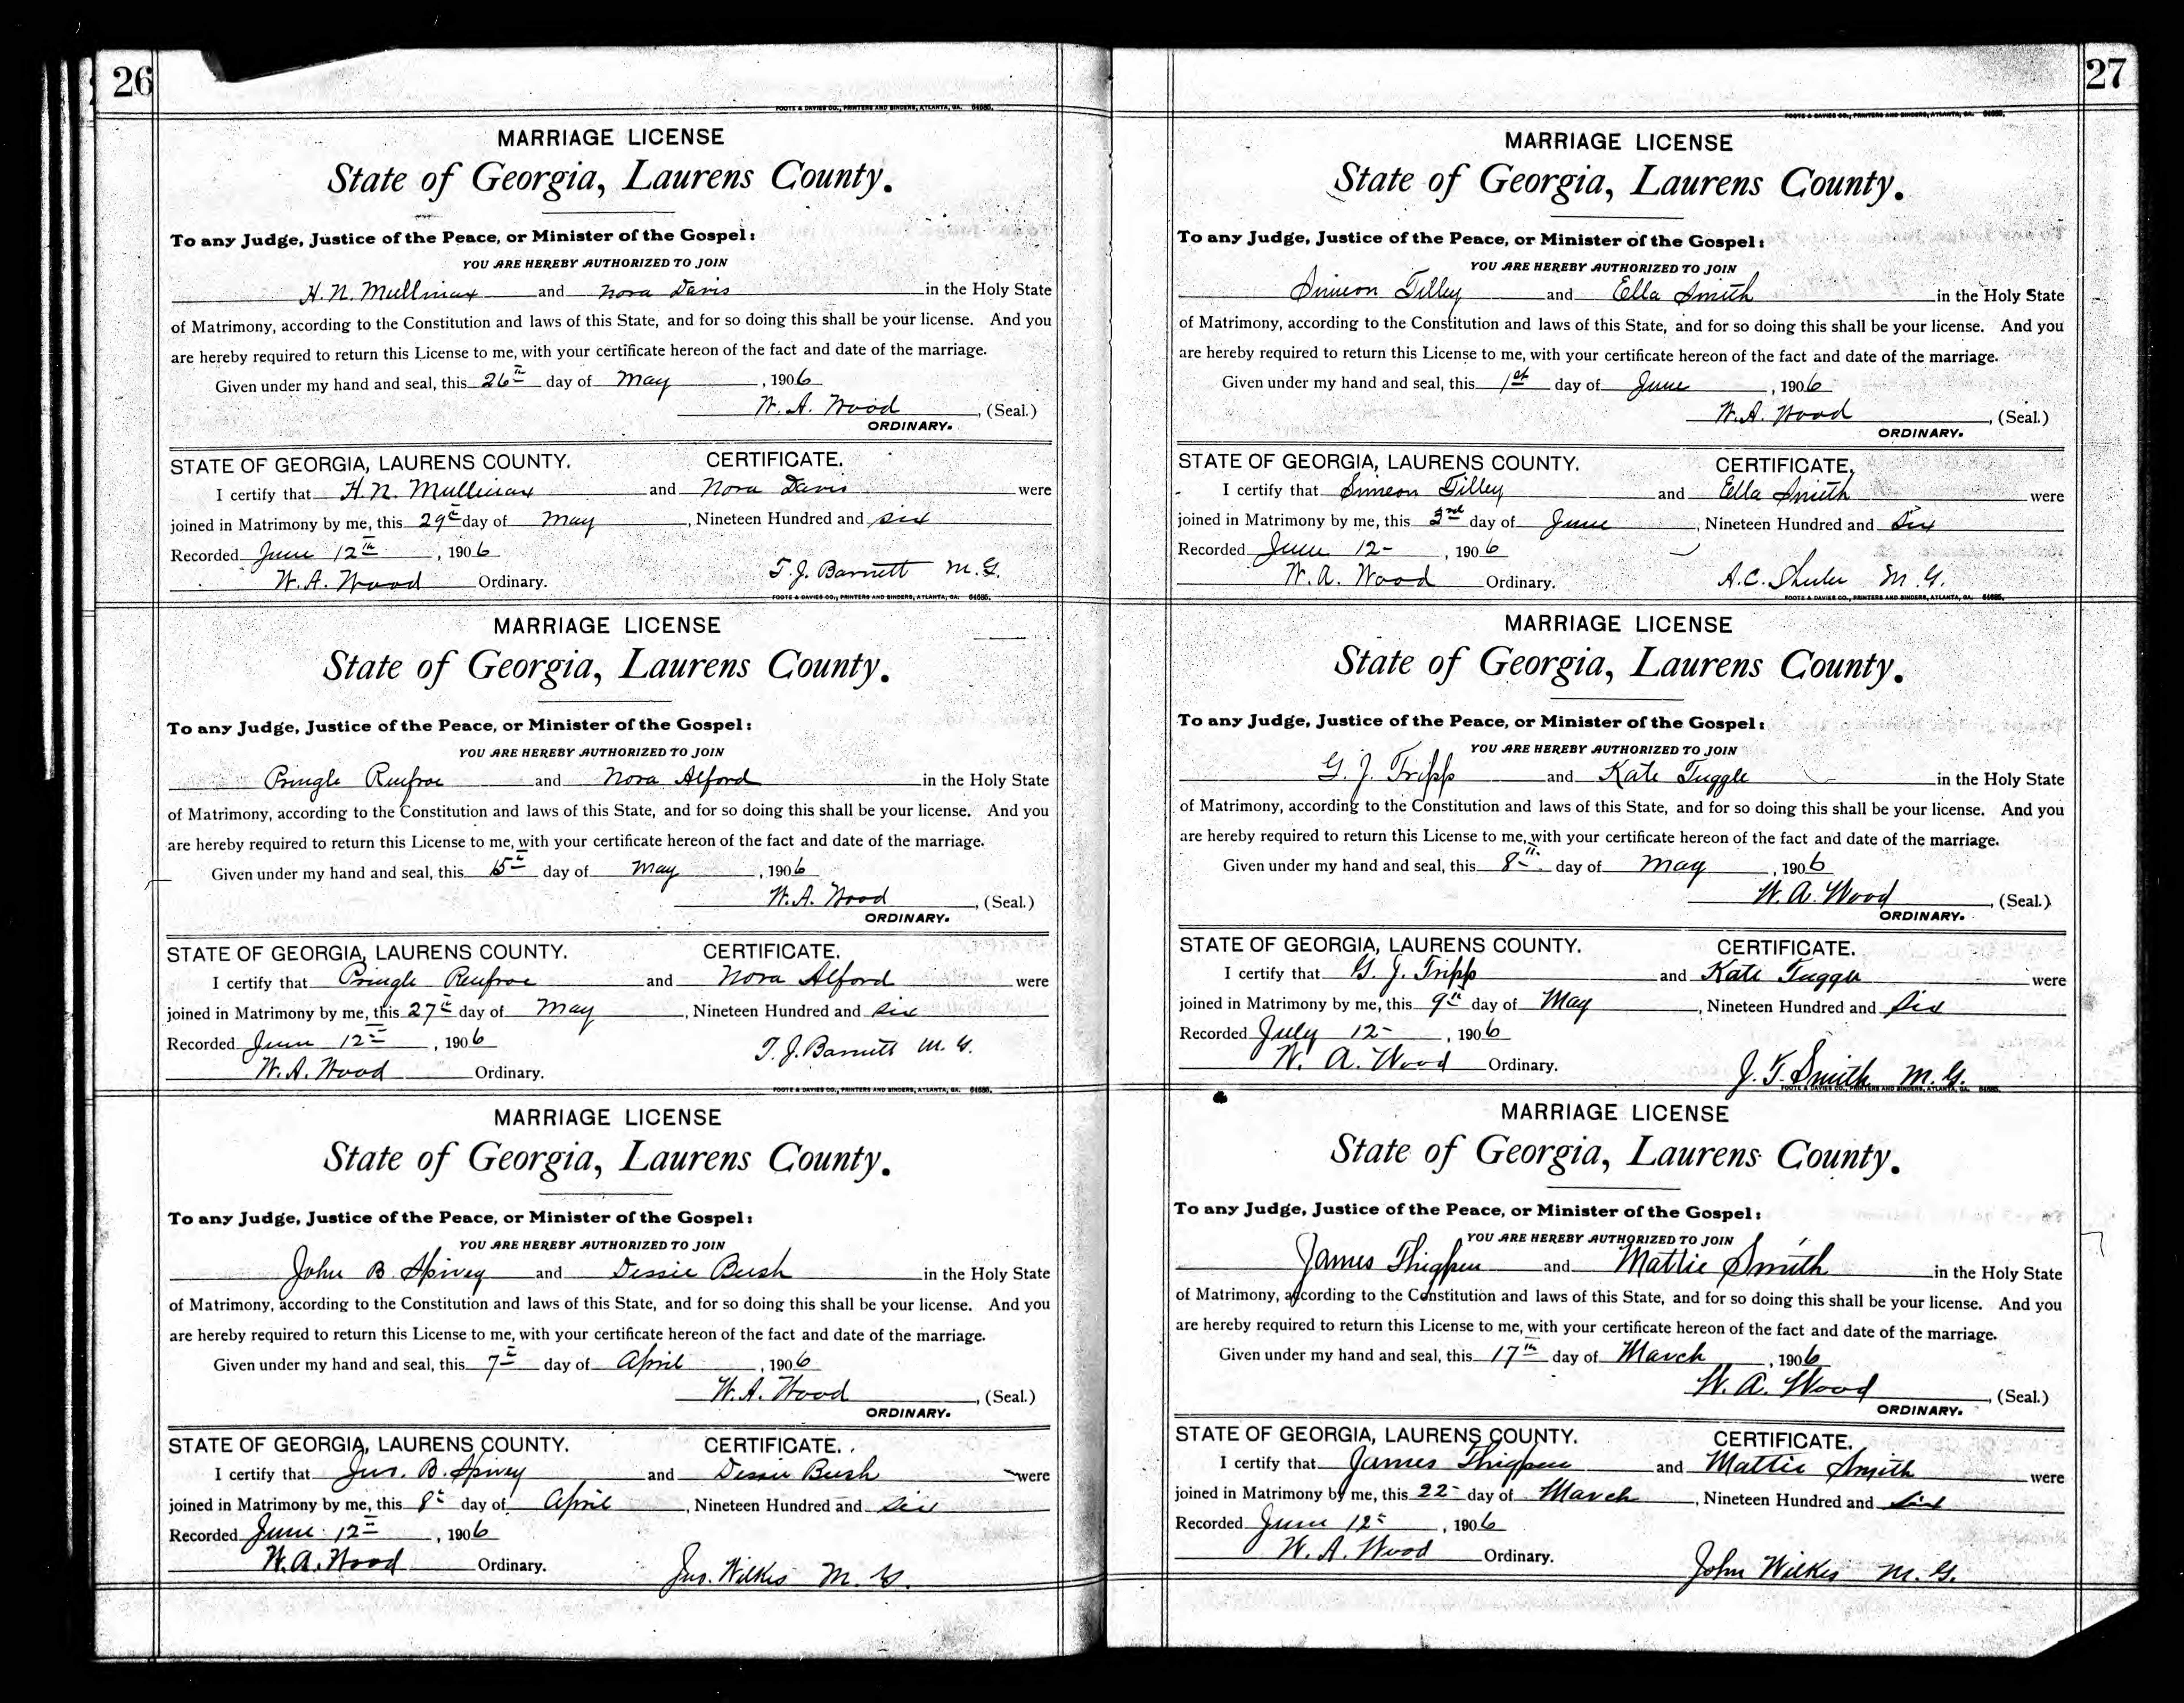 26
FOOTE & DAVIES CO., PRINTERS AND BINDERS, ATLANTA, GA. 64686.
MARRIAGE LICENSE
State of Georgia, Laurens County.
To any Judge, Justice of the Peace, or Minister of the Gospel:
YOU ARE HEREBY AUTHORIZED TO JOIN
H. N. Mullinax and Nora Davis in the Holy State
of Matrimony, according to the Constitution and laws of this State, and for so doing this shall be your license. And you
are hereby required to return this License to me, with your certificate hereon of the fact and date of the marriage.
Given under my hand and seal, this 26th day of May, 1906
W. A. Wood, (Seal.)
ORDINARY.
STATE OF GEORGIA, LAURENS COUNTY. CERTIFICATE.
I certify that H. N. Mullinax and Nora Davis were
joined in Matrimony by me, this 29th day of May, Nineteen Hundred and six
Recorded June 12th, 1906
W. A. Wood Ordinary. T. J. Barnett M. G.
FOOTE & DAVIES CO., PRINTERS AND BINDERS, ATLANTA, GA. 64686.
MARRIAGE LICENSE
State of Georgia, Laurens County.
To any Judge, Justice of the Peace, or Minister of the Gospel:
YOU ARE HEREBY AUTHORIZED TO JOIN
Pringle Renfroe and Nora Alford in the Holy State
of Matrimony, according to the Constitution and laws of this State, and for so doing this shall be your license. And you
are hereby required to return this License to me, with your certificate hereon of the fact and date of the marriage.
Given under my hand and seal, this 15th day of May, 1906
W. A. Wood, (Seal.)
ORDINARY.
STATE OF GEORGIA, LAURENS COUNTY. CERTIFICATE.
I certify that Pringle Renfroe and Nora Alford were
joined in Matrimony by me, this 27th day of May, Nineteen Hundred and six
Recorded June 12th, 1906
W. A. Wood Ordinary. T. J. Barnett M. G.
FOOTE & DAVIES CO., PRINTERS AND BINDERS, ATLANTA, GA. 64686.
MARRIAGE LICENSE
State of Georgia, Laurens County.
To any Judge, Justice of the Peace, or Minister of the Gospel:
YOU ARE HEREBY AUTHORIZED TO JOIN
John B Spivey and Dessie Bush in the Holy State
of Matrimony, according to the Constitution and laws of this State, and for so doing this shall be your license. And you
are hereby required to return this License to me, with your certificate hereon of the fact and date of the marriage.
Given under my hand and seal, this 7th day of April, 1906
W. A. Wood, (Seal.)
ORDINARY.
STATE OF GEORGIA, LAURENS COUNTY. CERTIFICATE.
I certify that Jno. B. Spivey and Dessie Bush were
joined in Matrimony by me, this 8th day of April, Nineteen Hundred and six
Recorded June 12th, 1906
W. A. Wood Ordinary. Jno. Wilkes M. G.
27
FOOTE & DAVIES CO., PRINTERS AND BINDERS, ATLANTA, GA. 64686.
MARRIAGE LICENSE
State of Georgia, Laurens County.
To any Judge, Justice of the Peace, or Minister of the Gospel:
YOU ARE HEREBY AUTHORIZED TO JOIN
Simeon Tilley and Ella Smith in the Holy State
of Matrimony, according to the Constitution and laws of this State, and for so doing this shall be your license. And you
are hereby required to return this License to me, with your certificate hereon of the fact and date of the marriage.
Given under my hand and seal, this 1st day of June, 1906
W. A. Wood, (Seal.)
ORDINARY.
STATE OF GEORGIA, LAURENS COUNTY. CERTIFICATE.
I certify that Simeon Tilley and Ella Smith were
joined in Matrimony by me, this 3rd day of June, Nineteen Hundred and Six
Recorded June 12-, 1906
W. A. Wood Ordinary. A. C. M. G.
FOOTE & DAVIES CO., PRINTERS AND BINDERS, ATLANTA, GA. 64686.
MARRIAGE LICENSE
State of Georgia, Laurens County.
To any Judge, Justice of the Peace, or Minister of the Gospel:
YOU ARE HEREBY AUTHORIZED TO JOIN
G. J. Tripp and Kate Tuggle in the Holy State
of Matrimony, according to the Constitution and laws of this State, and for so doing this shall be your license. And you
are hereby required to return this License to me, with your certificate hereon of the fact and date of the marriage.
Given under my hand and seal, this 8th day of May, 1906
W. A. Wood, (Seal.)
ORDINARY.
STATE OF GEORGIA, LAURENS COUNTY. CERTIFICATE.
I certify that G. J. Tripp and Kate Tuggle were
joined in Matrimony by me, this 9th day of May, Nineteen Hundred and Six
Recorded July 12-, 1906
W. A. Wood Ordinary.
J. T. Smith M. G.
FOOTE & DAVIES CO., PRINTERS AND BINDERS, ATLANTA, GA. 64686.
MARRIAGE LICENSE
State of Georgia, Laurens County.
To any Judge, Justice of the Peace, or Minister of the Gospel:
YOU ARE HEREBY AUTHORIZED TO JOIN
James Thigpen and Mattie Smith in the Holy State
of Matrimony, according to the Constitution and laws of this State, and for so doing this shall be your license. And you
are hereby required to return this License to me, with your certificate hereon of the fact and date of the marriage.
Given under my hand and seal, this 17th day of March, 1906
W. A. Wood, (Seal.)
ORDINARY.
STATE OF GEORGIA, LAURENS COUNTY. CERTIFICATE.
I certify that James Thigpen and Mattie Smith were
joined in Matrimony by me, this 22- day of March, Nineteen Hundred and Six
Recorded June 12th, 1906
W. A. Wood Ordinary. John Wilkes M. G.